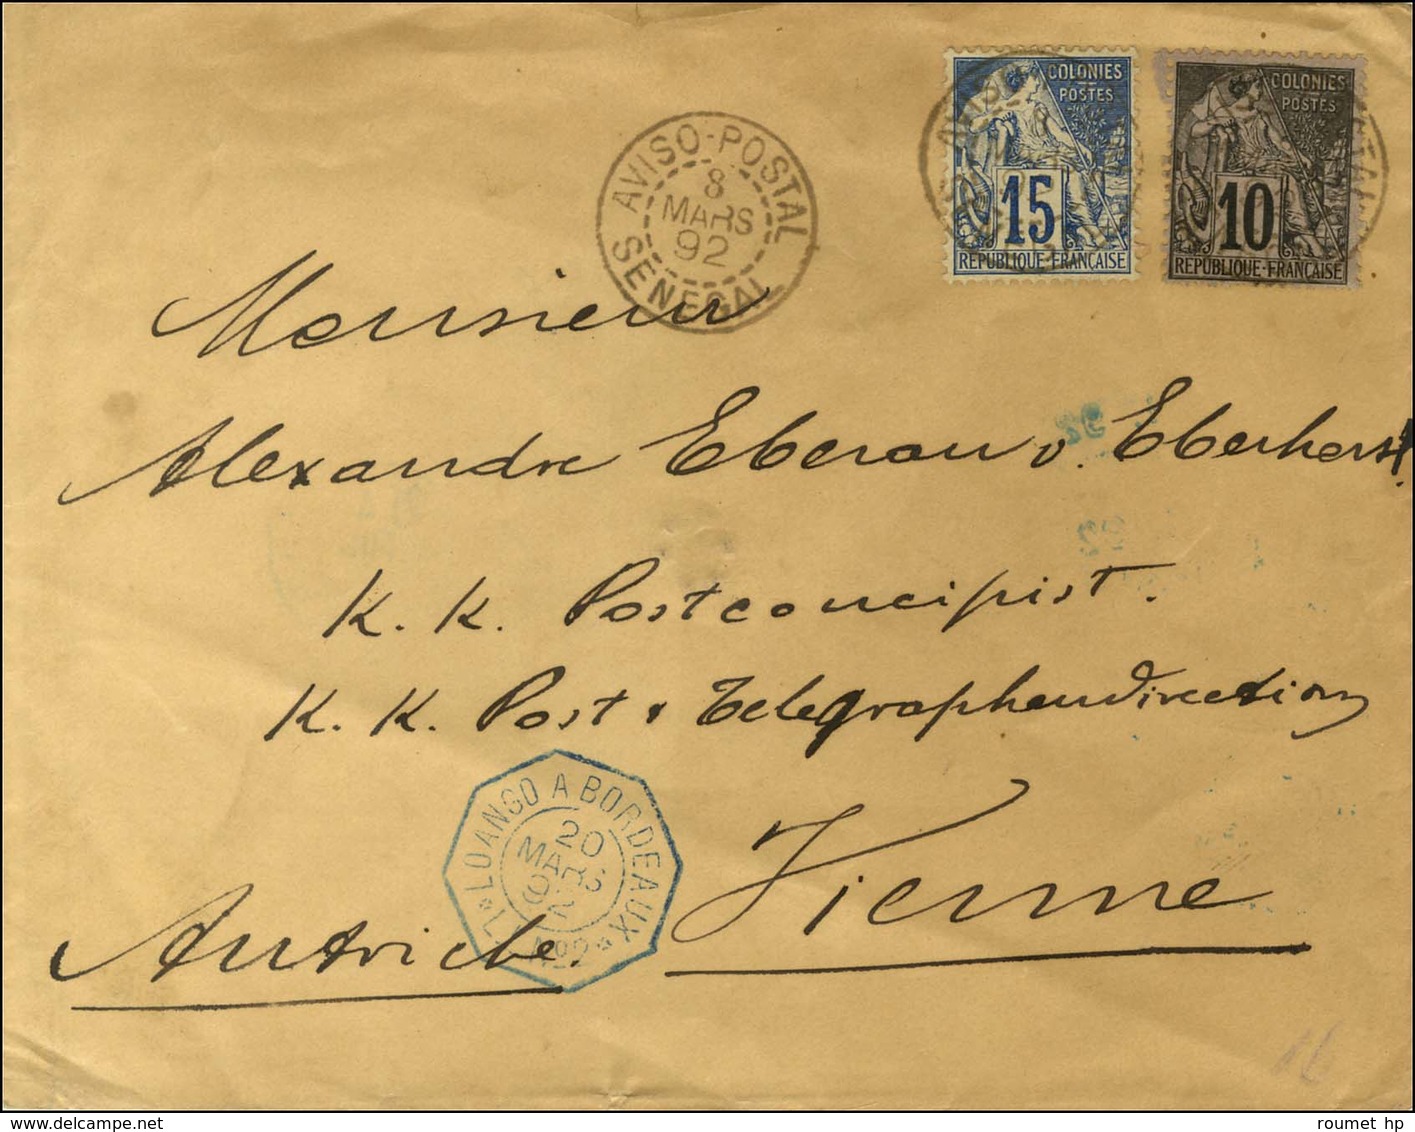 COLONIES
POSTES
15
REPUBLIQUE-FRANÇAISE
COLONIES
POSTES
10
REPUBLIQUE-FRANÇAISE
AVISO-POSTAL
8
MARS
92
SENEGAL
Monsieur
Alexandre Eberan v. Eberhorst
K. K. Postconcipist.
K. K. Post & Telegraphendirection
Vienne
Autriche
LOANGO A BORDEAUX
20
MARS
92
16
roumet hp